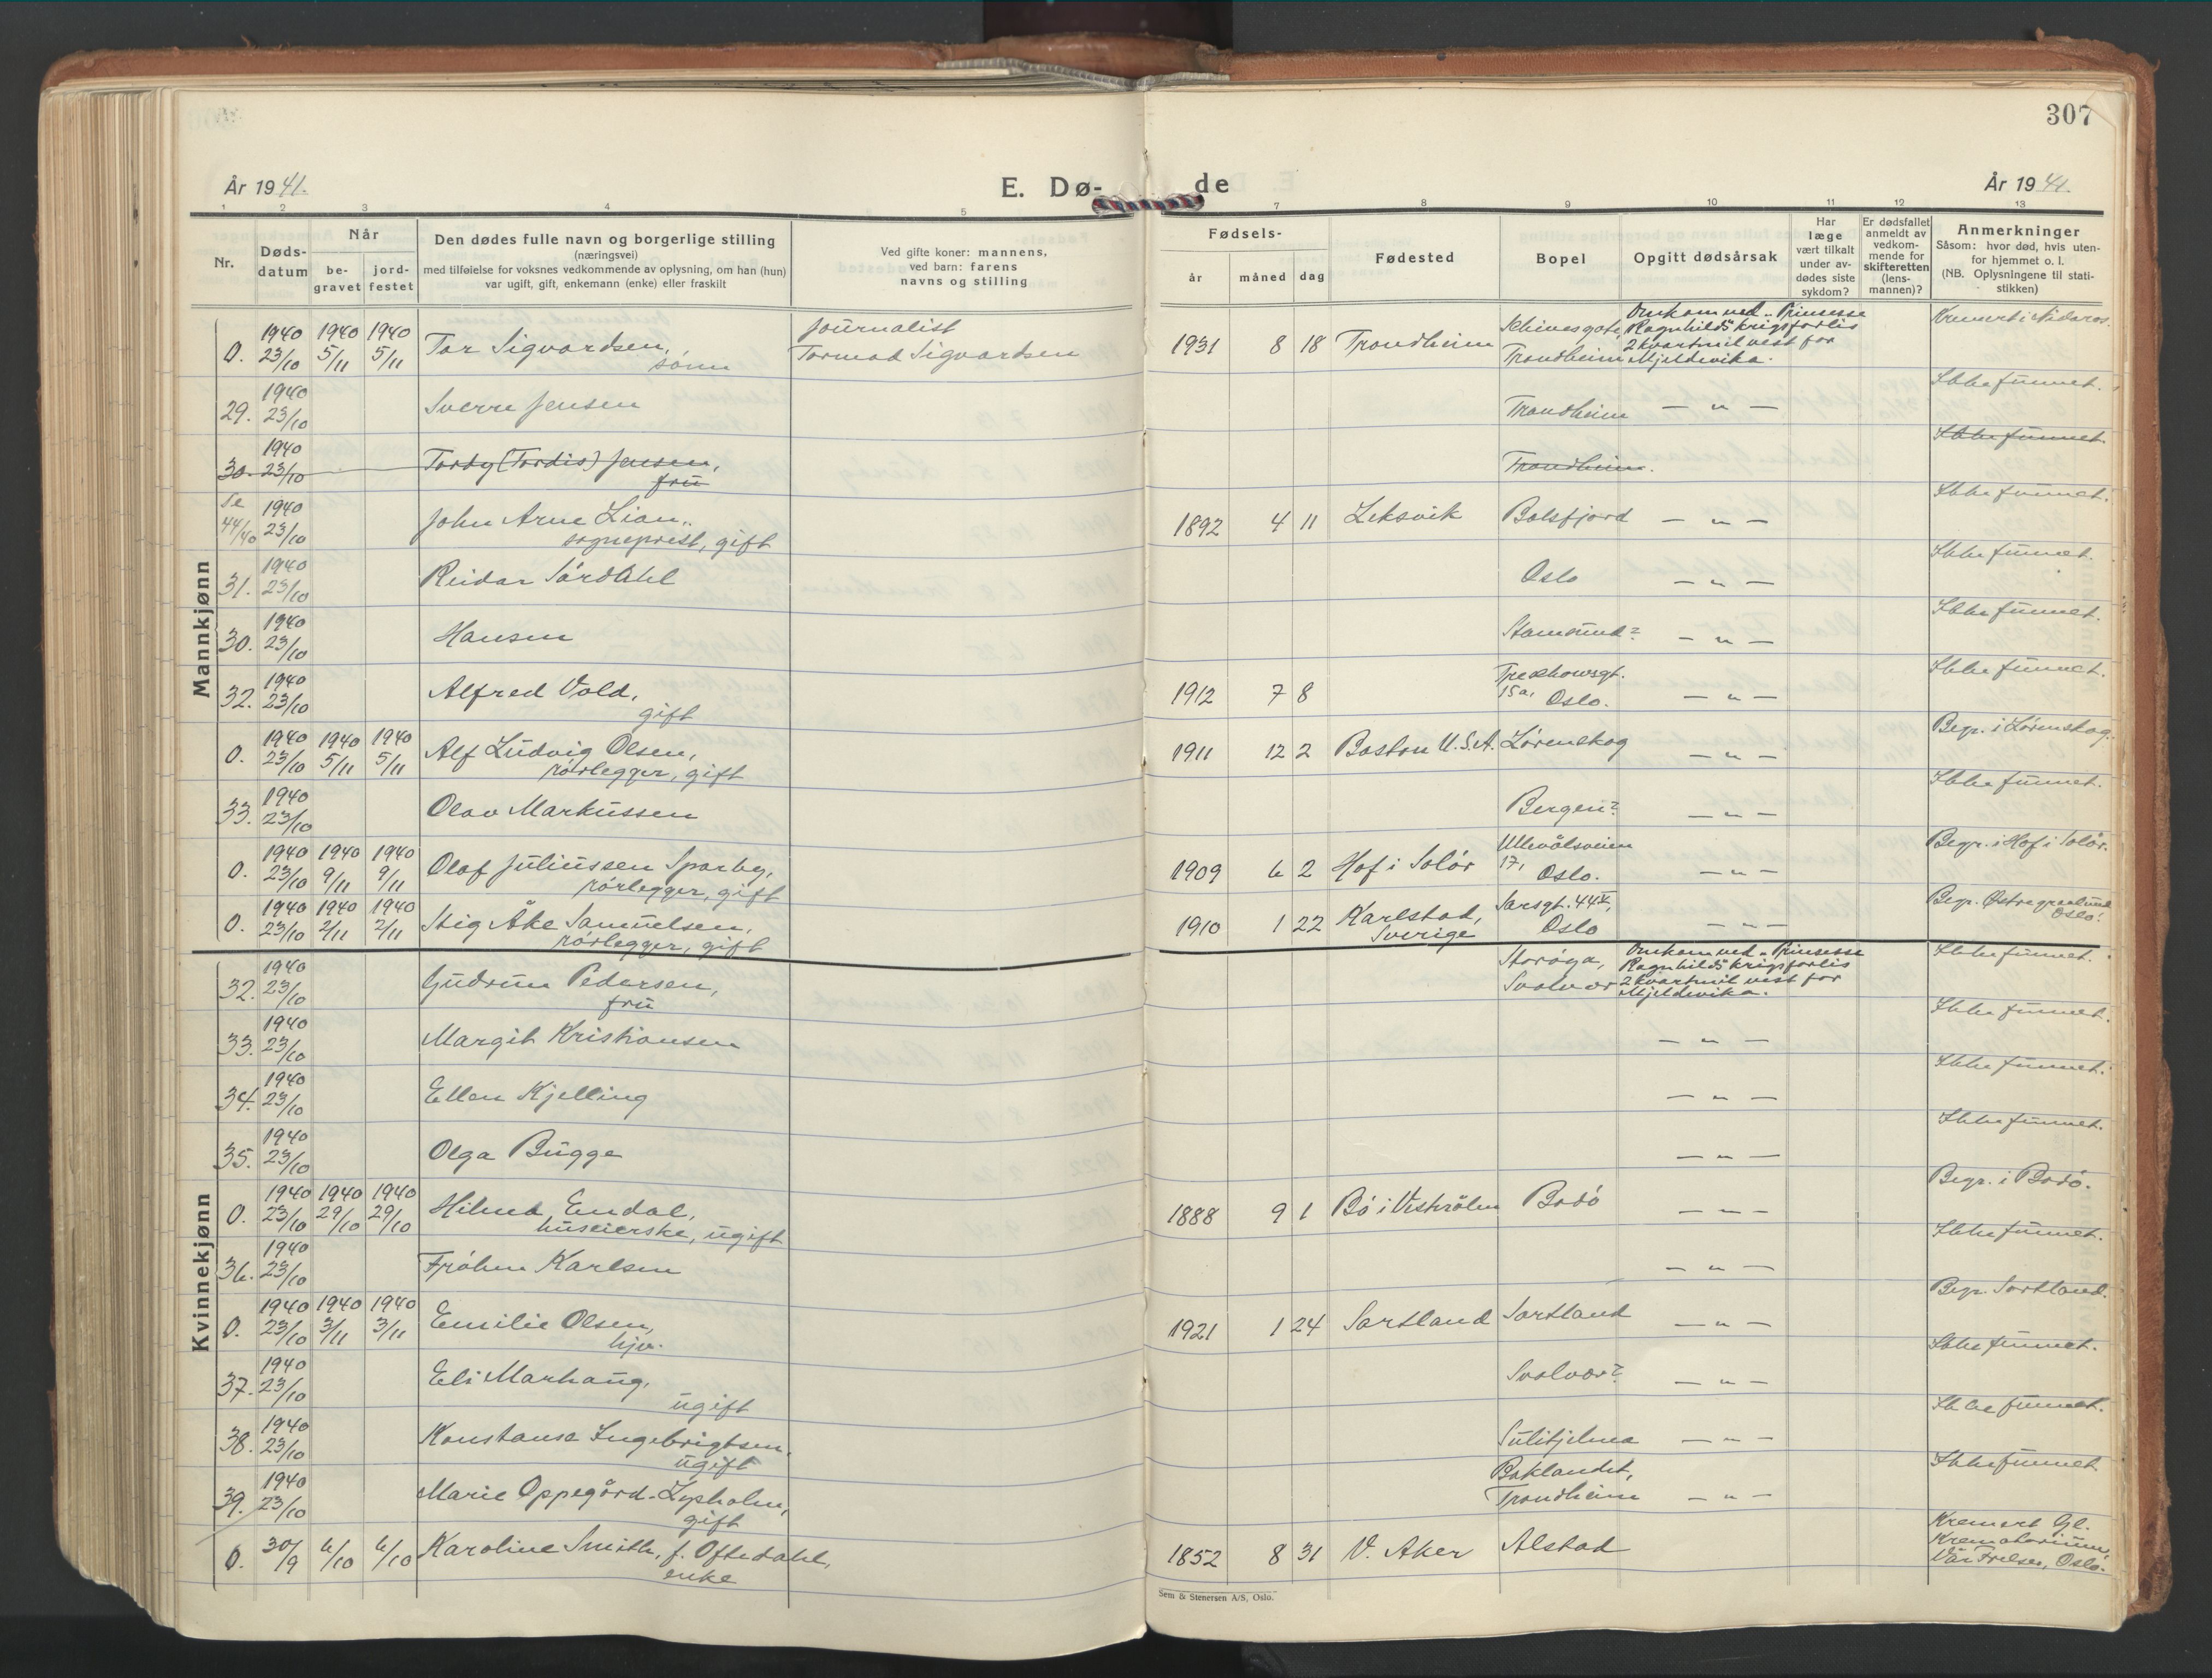 307
År 1941.
E. Dø-
de
År 1941.
1 2 3 4 5 7 8 9 10 11 12 13
Nr.
Døds-
datum
Når
be-
gravet
jord-
festet
Den dødes fulle navn og borgerlige stilling
(næringsvei)
med tilføielse for voksnes vedkommende av oplysning, om han (hun)
var ugift, gift, enkemann (enke) eller fraskilt
Ved gifte koner: mannens,
ved barn: farens
navns og stilling
Fødsels-
år måned dag
Fødested
Bopel
Opgitt dødsårsak
Har
læge
vært tilkalt
under av-
dødes siste
sykdom?
Er dødsfallet
anmeldt av
vedkom-
mende for
skifteretten
(lens-
mannen)?
Anmerkninger
Såsom: hvor død, hvis uten-
for hjemmet o. l.
(NB. Oplysningene til stati-
stikken)
Mannkjønn
0. 1940 23/10 1940 5/11 1940 5/11 Tor Sigvardsen, sønn Journalist Tormod Sigvardsen 1931 8 18 Trondheim Schivesgate, Trondheim Omkom ved "Prinsesse Ragnhild"s krigsforlis 2 kvartmil vest for Mjeldevika. Kremert i Nidaros.
29. 1940 23/10 Sverre Jensen Trondheim — " — Ikke funnet.
30. 1940 23/10 Tordy (Tordis) Jensen, frū Trondheim. Ikke funnet.
Se 44/40 1940 23/10 John Arne Lian, sogneprest, gift 1892 4 11 Leksvik Balsfjord — " — Ikke funnet.
31. 1940 23/10 Reidar Sørdahl Oslo — " — Ikke funnet.
30. 1940 23/10 Hansen Stamsund? — " — Ikke funnet.
32. 1940 23/10 Alfred Vold, gift 1912 7 8 15a, Oslo. — " — Ikke funnet.
0. 1940 23/10 1940 5/11 1940 5/11 Alf Ludvig Olsen, rørlegger, gift 1911 12 2 Boston U.S.A. Lørenskog — " — Begr. i Lørenskog.
33. 1940 23/10 Olav Markussen Bergen? — " — Ikke funnet.
0. 1940 23/10 1940 9/11 1940 9/11 Olaf Juliussen Sparby, rørlegger, gift 1909 6 2 Hof i Solør Ullevålsveien 17, Oslo. — " — Begr. i Hof i Solør.
0. 1940 23/10 1940 2/11 1940 2/11 Stig Åke Samuelsen, rørlegger, gift 1910 1 22 Karlstad, Sverige Sarsgt. 44 Oslo — " — Begr. Østre gravlund Oslo.
Kvinnekjønn
32. 1940 23/10 Gudrun Pedersen, fru Storøya, Svolvær Omkom ved "Prinsesse Ragnhild"s krigsforlis 2 kvartmil vest for Mjeldevika. Ikke funnet.
33. 1940 23/10 Margit Kristiansen — " — Ikke funnet.
34. 1940 23/10 Ellen Kjelling — " — Ikke funnet.
35. 1940 23/10 Olga Bugge — " — Ikke funnet.
0. 1940 23/10 1940 29/10 1940 29/10 Hilma Endal, huseierske, ugift 1888 9 1 Bø i Vesterålen Bodø — " — Begr. i Bodø.
36. 1940 23/10 Frøken Karlsen — " — Ikke funnet.
0. 1940 23/10 1940 3/11 1940 3/11 Emilie Olsen, hjv. 1921 1 24 Sortland Sortland — " — Begr. Sortland.
37. 1940 23/10 Eli Marhaug, ugift Svolvær? — " — Ikke funnet.
38. 1940 23/10 Konstanse Ingebrigtsen, ugift Sulitjelma — " — Ikke funnet.
39. 1940 23/10 Marie Oppegård-Lysholm, gift Baklandet, Trondheim — " — Ikke funnet
0. 30/9 6/10 6/10 Karoline Smith, f. Oftedahl, enke 1852 8 31 V. Aker Alstad Kremert Gl. Krematorium, Vår Frelser, Oslo.
Sem & Stenersen A/S, Oslo.